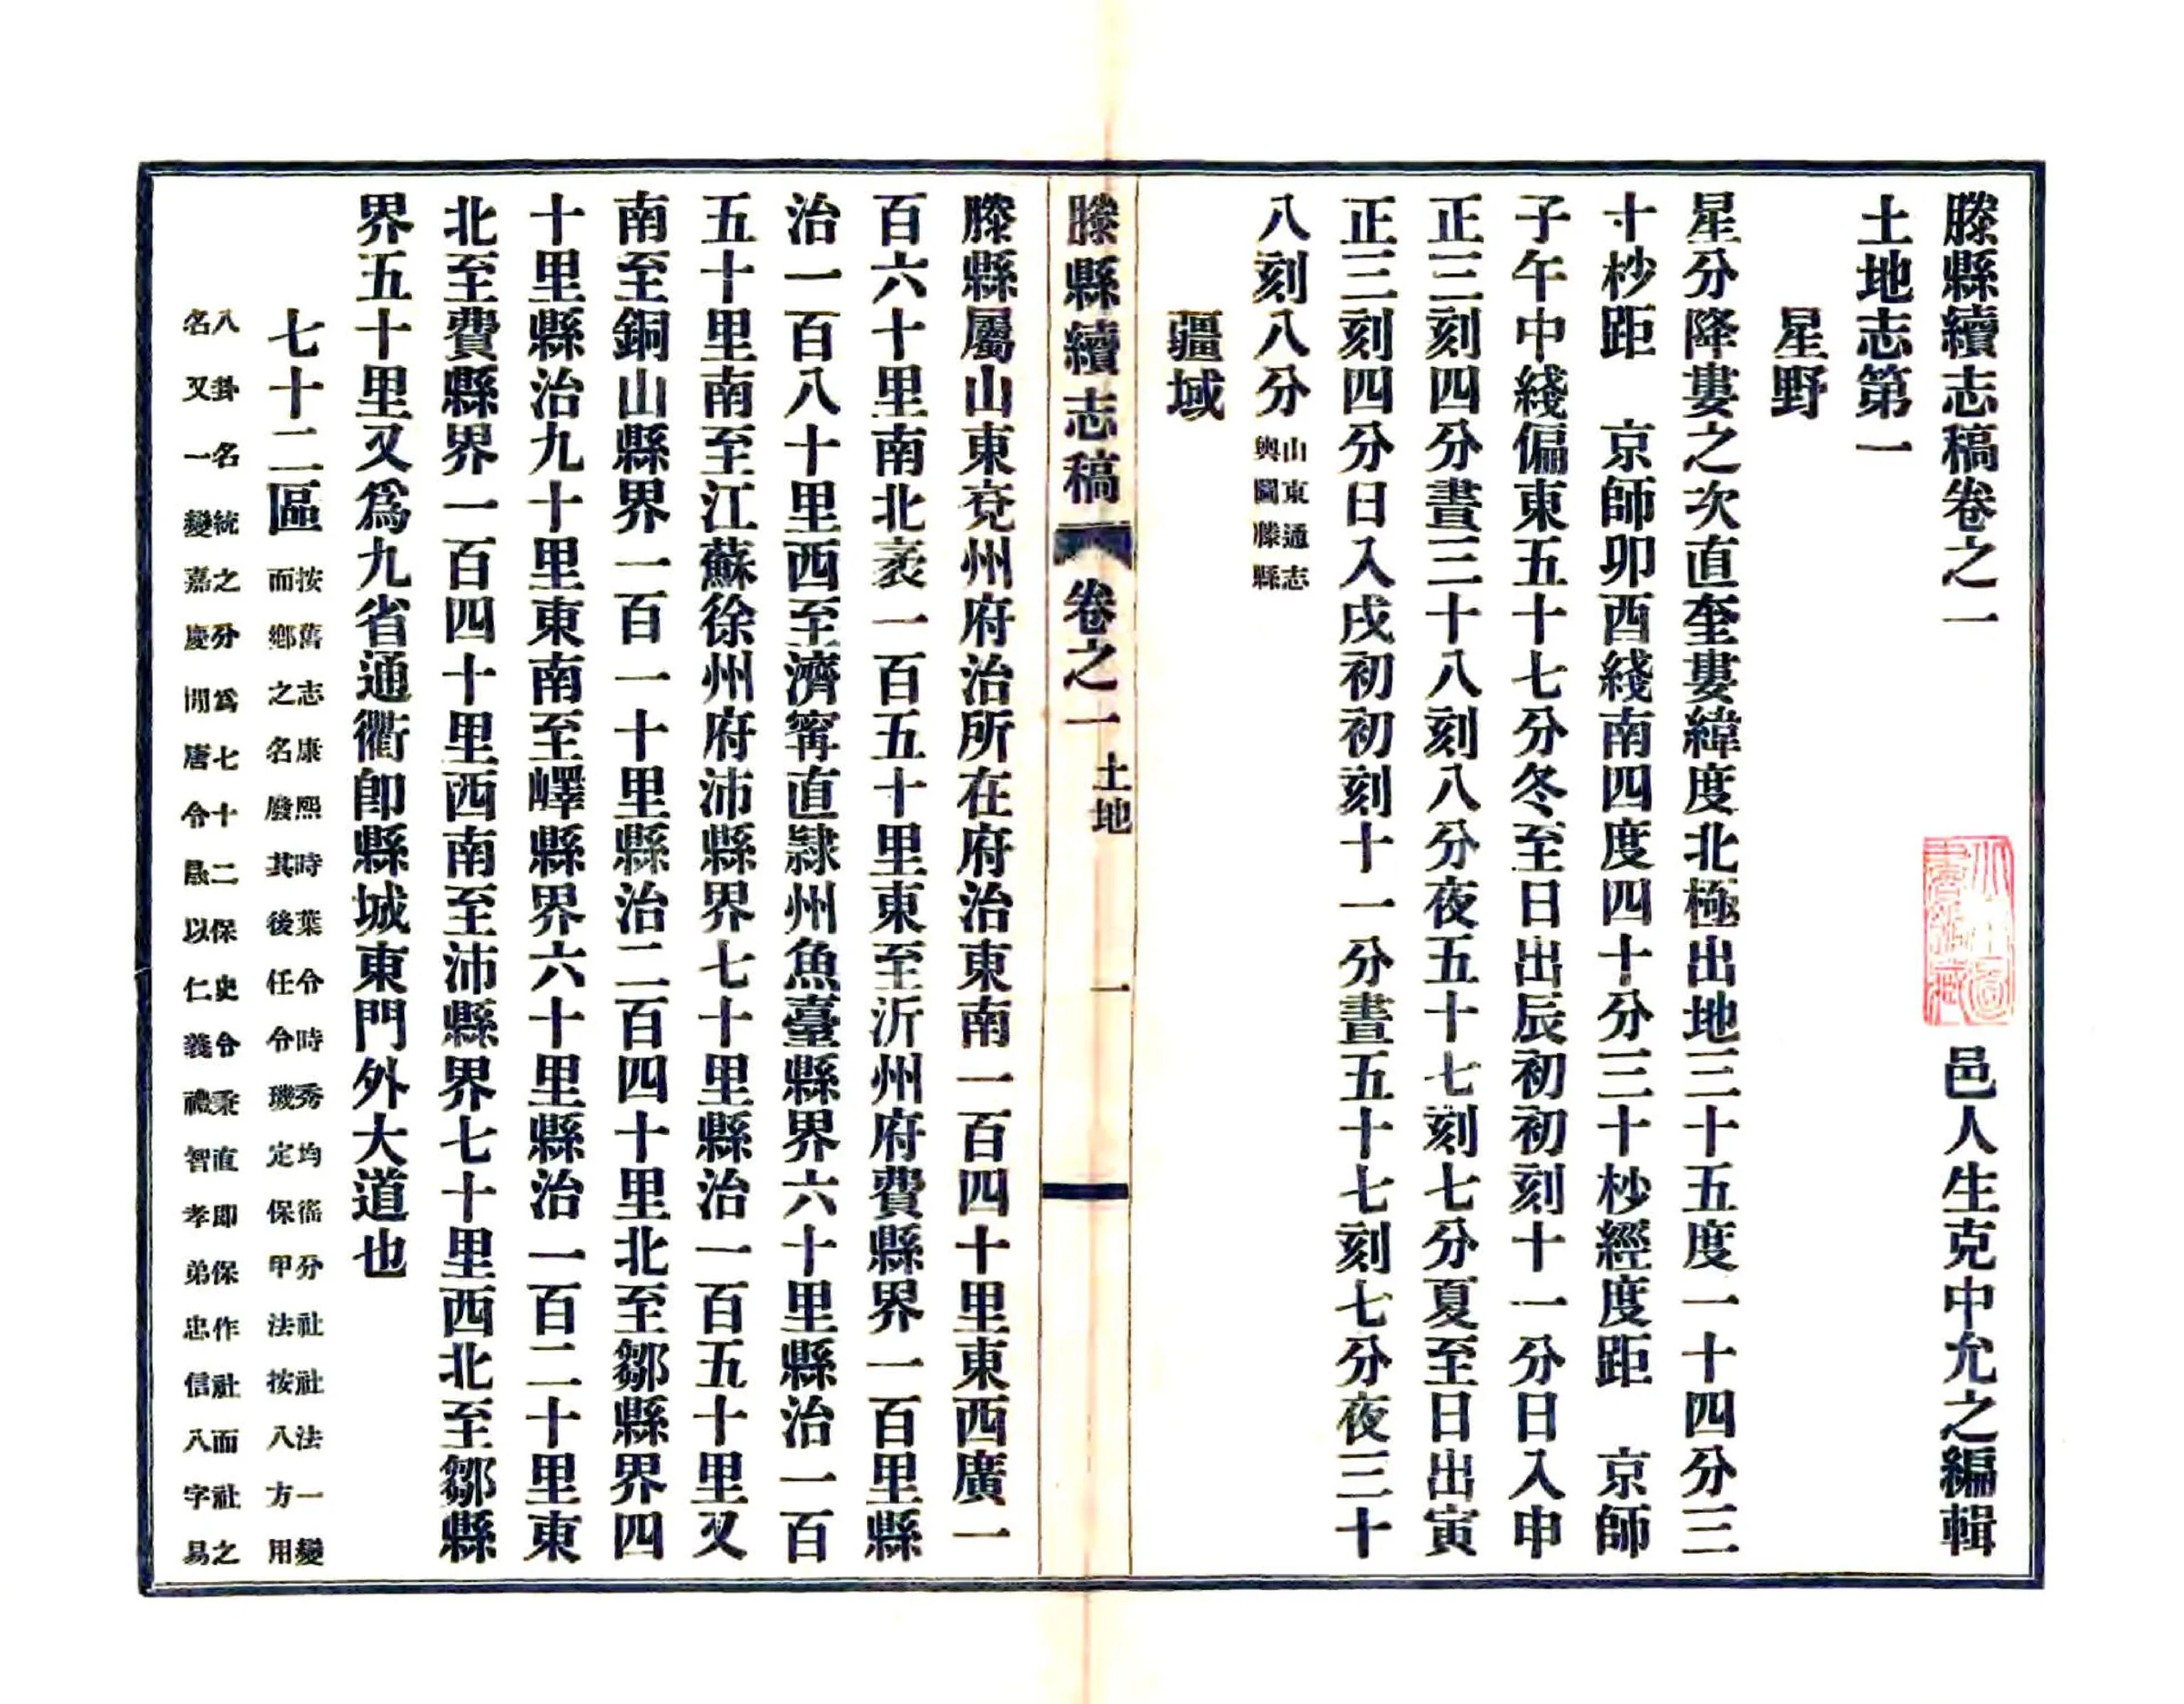 滕縣續志稿卷之一 邑人生克中允之編輯
土地志第一
星野
星分降婁之次直奎婁緯度北極出地三十五度一十四分三
寸杪距 京師卯酉綫南四度四十分三十杪經度距 京師
子午中綫偏東五十七分冬至日出辰初初刻十一分日入申
正三刻四分晝三十八刻八分夜五十七刻七分夏至日出寅
正三刻四分日入戌初初刻十一分晝五十七刻七分夜三十
八刻八分 山東通志
輿圖滕縣
疆域
滕縣續志稿 卷之一 土地 一
滕縣屬山東兗州府治所在府治東南一百四十里東西廣一
百六十里南北袤一百五十里東至沂州府費縣界一百里縣
治一百八十里西至濟甯直隸州魚臺縣界六十里縣治一百
五十里南至江蘇徐州府沛縣界七十里縣治一百五十里又
南至銅山縣界一百一十里縣治二百四十里北至鄒縣界四
十里縣治九十里東南至嶧縣界六十里縣治一百二十里東
北至費縣界一百四十里西南至沛縣界七十里西北至鄒縣
界五十里又爲九省通衢卽縣城東門外大道也
七十二區 按舊志康熙時葉令時秀均徭分社社法一變
而鄉之名廢其後任令璣定保甲法按八方用
八卦名統之分爲七十二保史令秉直即保作社而社之
名又一變嘉慶閒唐令以仁義禮智孝弟忠信八字易